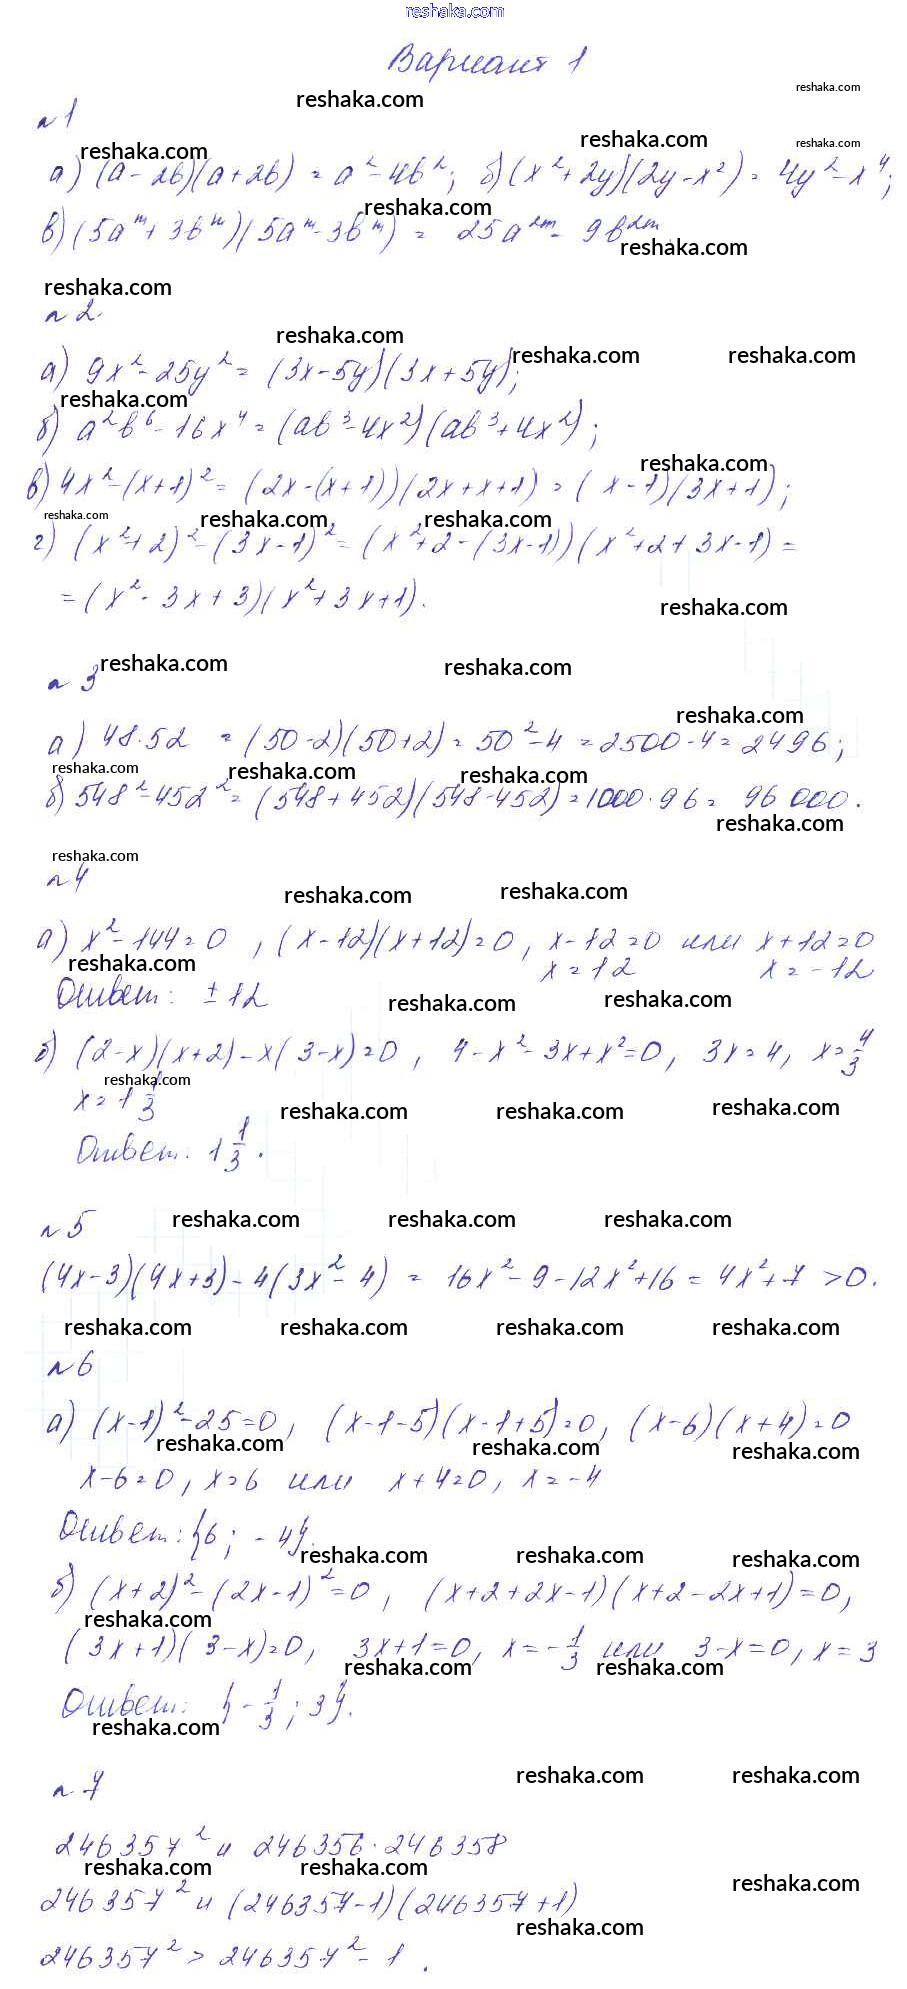 reshaka.com
Вариант 1
reshaka.com reshaka.com
n 1
reshaka.com reshaka.com reshaka.com
а) (a - 2b)(a + 2b) = a² - 4b²; б) (x² + 2y)(2y - x²) = 4y² - x⁴;
reshaka.com
в) (5aᵐ + 3bᵐ)(5aᵐ - 3bᵐ) = 25a²ᵐ - 9b²ᵐ
reshaka.com
reshaka.com
n 2
reshaka.com reshaka.com reshaka.com
а) 9x² - 25y² = (3x - 5y)(3x + 5y);
reshaka.com
б) a²b⁶ - 16x⁴ = (ab³ - 4x²)(ab³ + 4x²);
reshaka.com
в) 4x² - (x + 1)² = (2x - (x + 1))(2x + x + 1) = (x - 1)(3x + 1);
reshaka.com reshaka.com reshaka.com
г) (x² + 2)² - (3x - 1)² = (x² + 2 - (3x - 1))(x² + 2 + 3x - 1) =
= (x² - 3x + 3)(x² + 3x + 1).
reshaka.com
reshaka.com reshaka.com
n 3
reshaka.com
а) 48·52 = (50 - 2)(50 + 2) = 50² - 4 = 2500 - 4 = 2496;
reshaka.com reshaka.com reshaka.com
б) 548² - 452² = (548 + 452)(548 - 452) = 1000·96 = 96 000.
reshaka.com
reshaka.com
n 4
reshaka.com reshaka.com
а) x² - 144 = 0, (x - 12)(x + 12) = 0, x - 12 = 0 или x + 12 = 0
reshaka.com x = 12 x = -12
Ответ: ± 12
reshaka.com reshaka.com
б) (2 - x)(x + 2) - x(3 - x) = 0, 4 - x² - 3x + x² = 0, 3x = 4, x = 4/3
reshaka.com
x = 1 1/3
reshaka.com reshaka.com reshaka.com
Ответ: 1 1/3.
reshaka.com reshaka.com reshaka.com
n 5
(4x - 3)(4x + 3) - 4(3x² - 4) = 16x² - 9 - 12x² + 16 = 4x² + 7 > 0.
reshaka.com reshaka.com reshaka.com reshaka.com
n 6
а) (x - 1)² - 25 = 0, (x - 1 - 5)(x - 1 + 5) = 0, (x - 6)(x + 4) = 0
reshaka.com reshaka.com reshaka.com
x - 6 = 0, x = 6 или x + 4 = 0, x = -4
Ответ: {6; -4}.
reshaka.com reshaka.com reshaka.com
б) (x + 2)² - (2x - 1)² = 0, (x + 2 + 2x - 1)(x + 2 - 2x + 1) = 0,
reshaka.com
(3x + 1)(3 - x) = 0, 3x + 1 = 0, x = -1/3 или 3 - x = 0, x = 3
reshaka.com reshaka.com
Ответ: {-1/3; 3}.
reshaka.com
reshaka.com reshaka.com
n 7
246357² и 246356·246358
reshaka.com reshaka.com
reshaka.com
246357² и (246357 - 1)(246357 + 1)
reshaka.com
246357² > 246357² - 1.